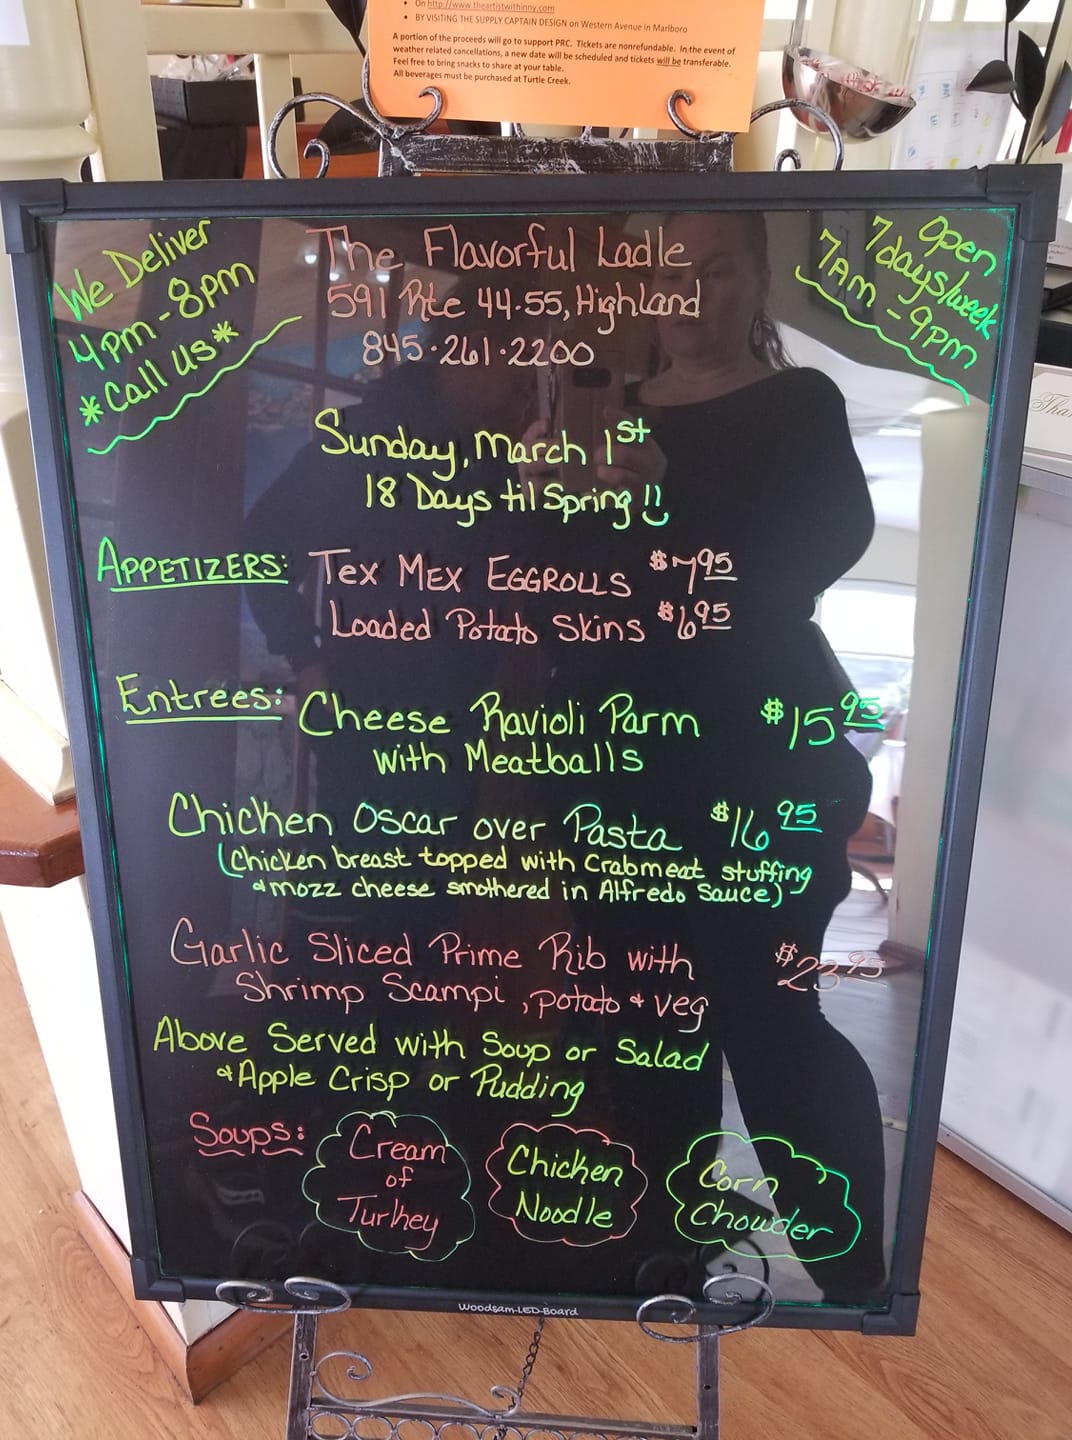 • On http://www.theartistwithinny.com
• BY VISITING THE SUPPLY CAPTAIN DESIGN on Western Avenue in Marlboro
A portion of the proceeds will go to support PRC. Tickets are nonrefundable. In the event of
weather related cancellations, a new date will be scheduled and tickets will be transferable.
Feel free to bring snacks to share at your table.
All beverages must be purchased at Turtle Creek.
We Deliver
4pm - 8pm
*Call us*
The Flavorful Ladle
591 Rte 44·55, Highland
845·261·2200
Open
7days/week
7AM - 9pm
Sunday, March 1st
18 Days til Spring!!
APPETIZERS: Tex Mex EGGROLLS $7.95
Loaded Potato Skins $6.95
Entrees: Cheese Ravioli Parm $15.95
with Meatballs
Chicken Oscar over Pasta $16.95
(Chicken breast topped with Crabmeat stuffing
& mozz cheese smothered in Alfredo Sauce)
Garlic Sliced Prime Rib with $23.95
Shrimp Scampi, potato & veg
Above Served with Soup or Salad
& Apple Crisp or Pudding
Soups:
Cream
of
Turkey
Chicken
Noodle
Corn
Chowder
Woodsam-LED-Board